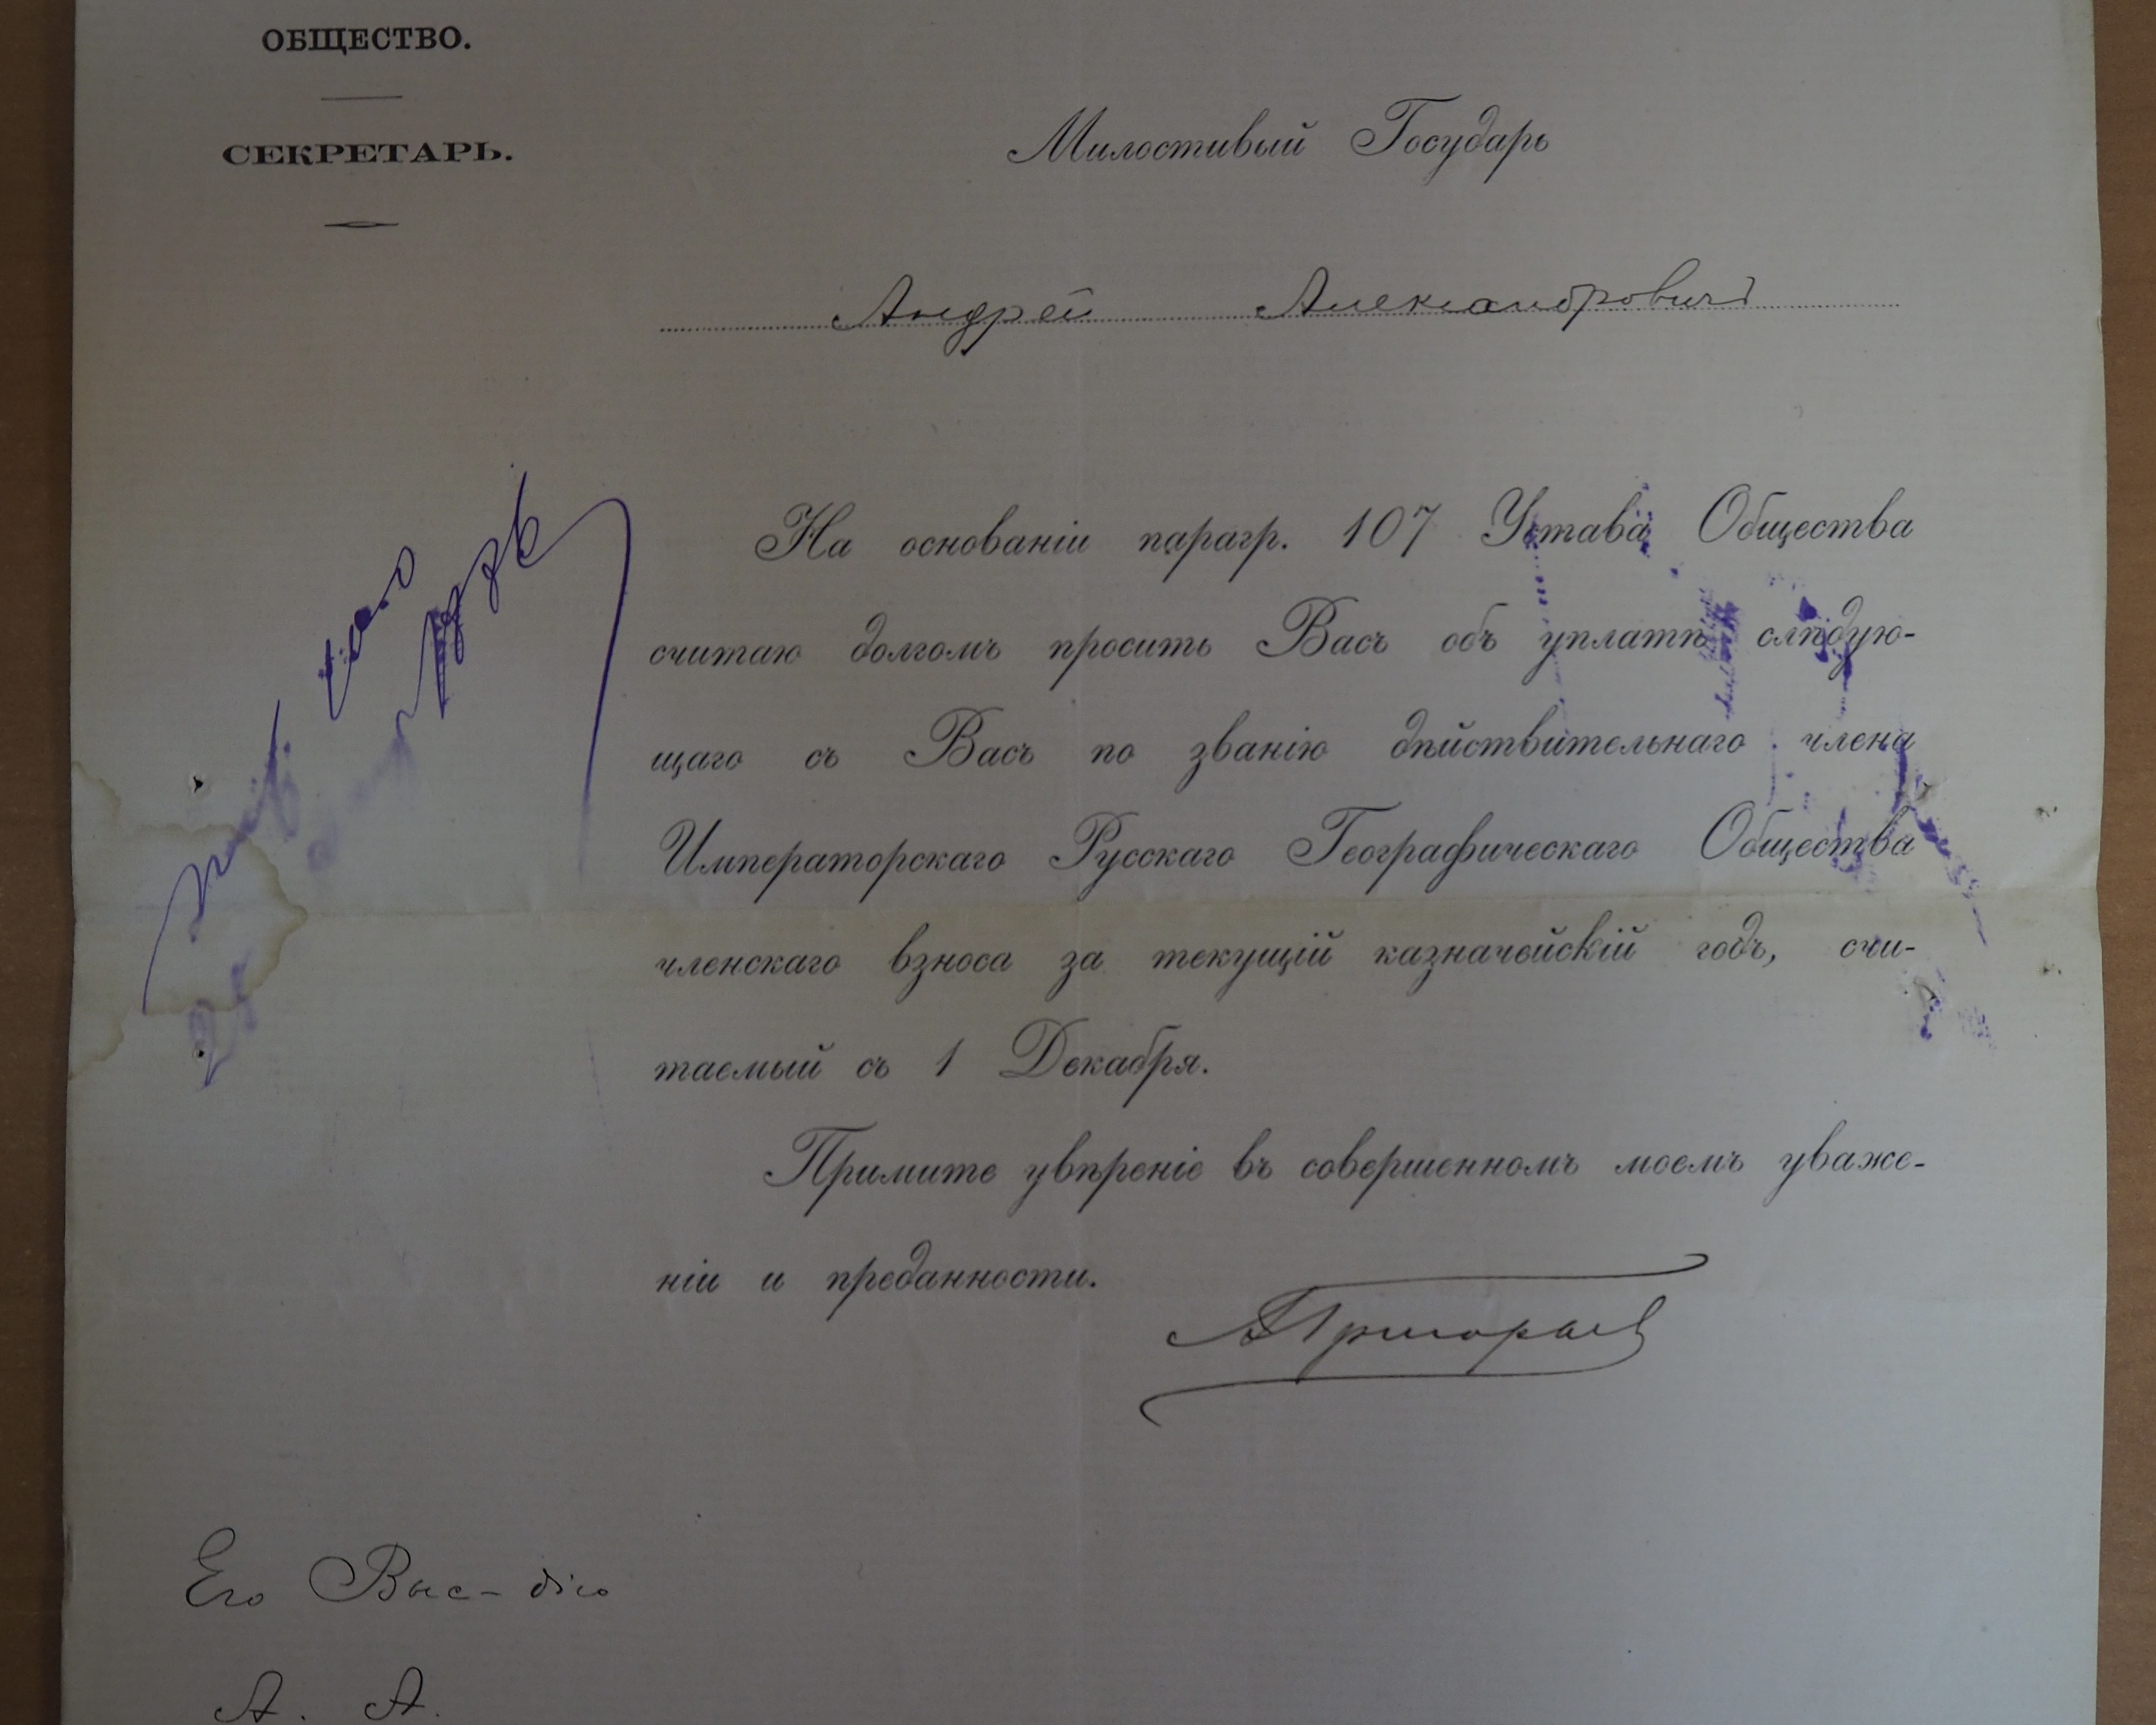 ОБЩЕСТВО.
СЕКРЕТАРЬ.
Милостивый Государь
Андрей Александровичъ
На основаніи парагр. 107 Устава Общества
считаю долгомъ просить Васъ объ уплатѣ слѣдую-
щаго съ Васъ по званію дѣйствительнаго члена
Императорскаго Русскаго Географическаго Общества
членскаго взноса за текущій казначейскій годъ, счи-
таемый съ 1 Декабря.
Примите увѣреніе въ совершенномъ моемъ уваже-
ніи и преданности.
А Григорьев
Его Выс-дію
А. А.